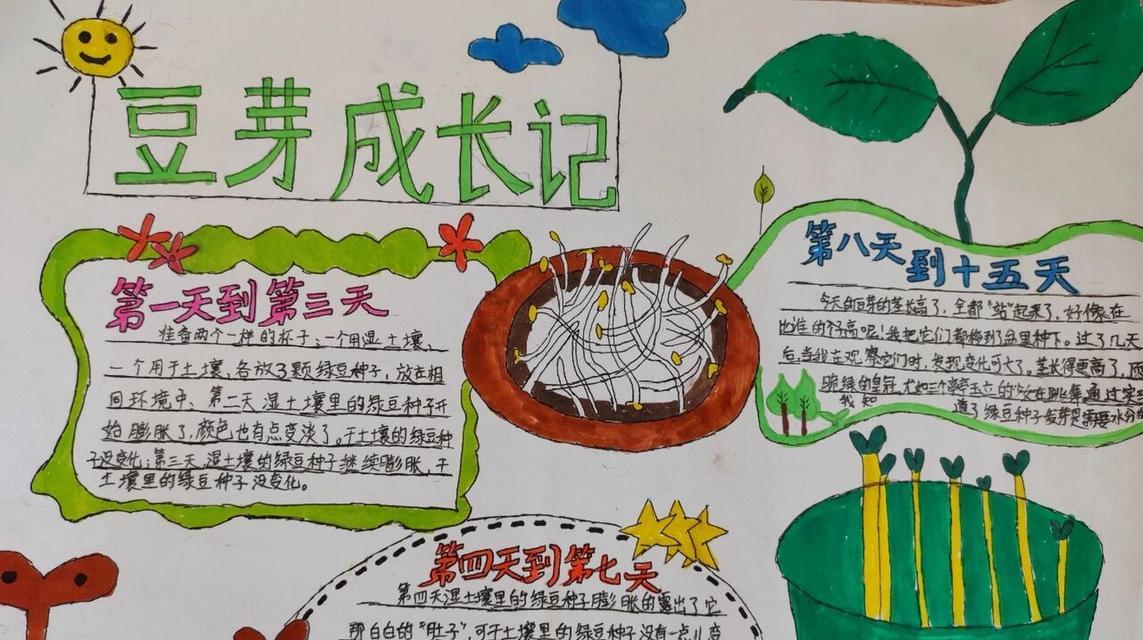 豆芽成长记
第一天到第三天
准备两个一样的杯子:一个用湿土壤、
一个用干土壤、各放3颗绿豆种子,放在相
同环境中、第二天湿土壤里的绿豆种子开
始膨胀了,颜色也有点变淡了。干土壤的绿豆种
子没变化;第三天湿土壤的绿豆种子继续膨胀,干
土壤里的绿豆种子没变化。
第四天到第七天
第四天湿土壤里的绿豆种子膨胀的露出了它
那白白的“肚子”,可干土壤里的绿豆种子没有一点儿变
第八天到十五天
今天的豆芽的茎长高了,全都“站”起来了,好像在
比谁的个子高呢!我把它们都移到盆里种下。过了几天
后,当我在观察它们时,发现变化可大了。茎长得更高了,两
脆绿的皇冠,尤如三个亭亭玉立的少女在跳舞,通过实
我知道了绿豆种子发芽是需要水分